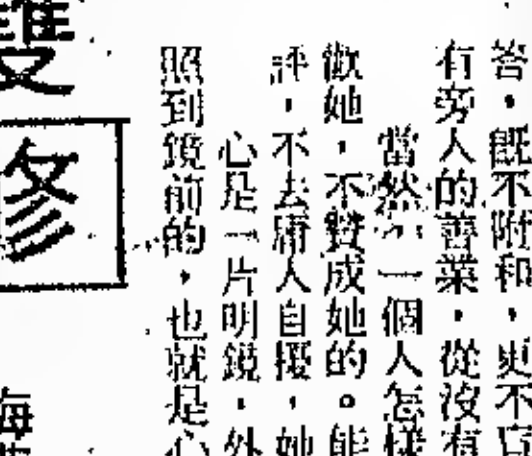 答，既不附和，更不
有旁人的善業，從沒有
當然，一個人怎樣
歡她，不贊成她的。能
評，不去庸人自擾，她
心是一片明鏡，外
照到鏡前的，也就是心
雙修
海